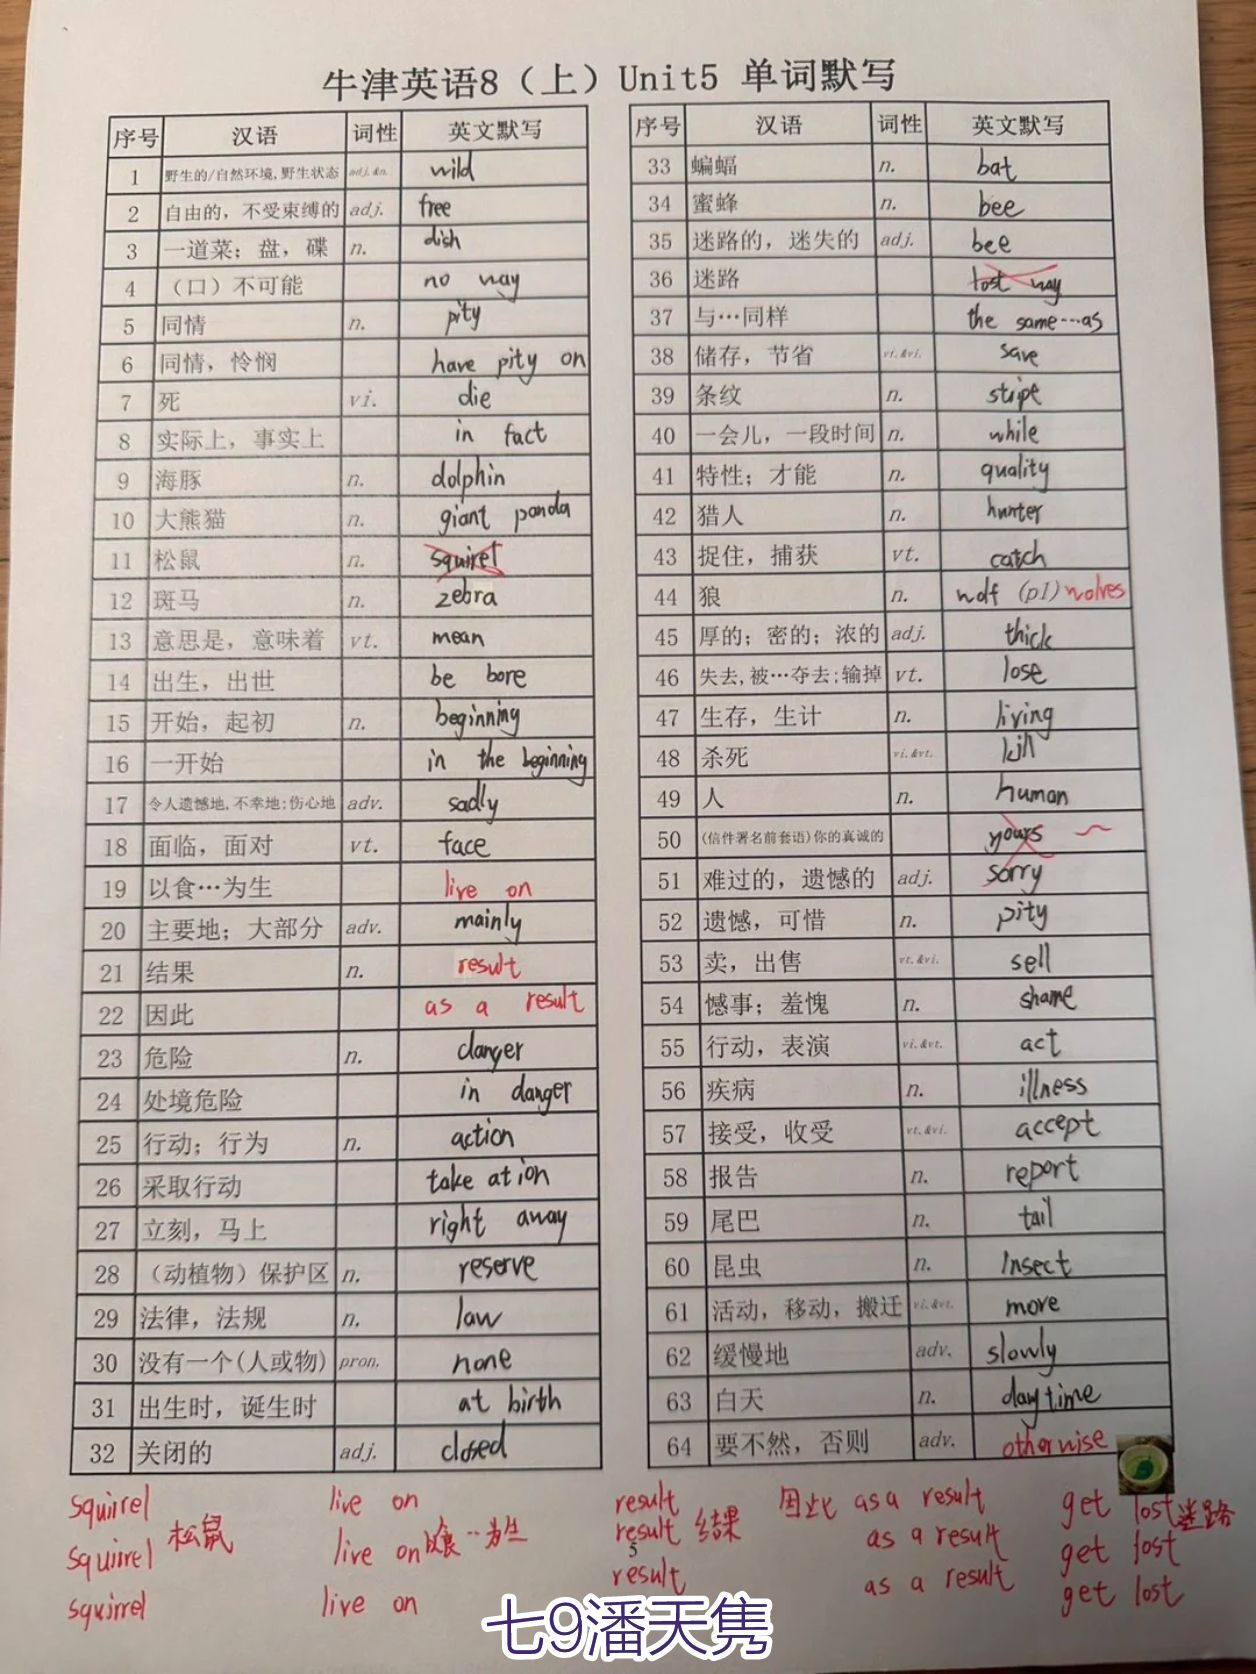 牛津英语8（上）Unit5 单词默写
序号 汉语 词性 英文默写
1 野生的/自然环境,野生状态 adj.&n. wild
2 自由的，不受束缚的 adj. free
3 一道菜；盘，碟 n. dish
4 （口）不可能 no way
5 同情 n. pity
6 同情，怜悯 have pity on
7 死 vi. die
8 实际上，事实上 in fact
9 海豚 n. dolphin
10 大熊猫 n. giant panda
11 松鼠 n. squirel
12 斑马 n. zebra
13 意思是，意味着 vt. mean
14 出生，出世 be bore
15 开始，起初 n. beginning
16 一开始 in the beginning
17 令人遗憾地,不幸地;伤心地 adv. sadly
18 面临，面对 vt. face
19 以食…为生 live on
20 主要地；大部分 adv. mainly
21 结果 n. result
22 因此 as a result
23 危险 n. danger
24 处境危险 in danger
25 行动；行为 n. action
26 采取行动 take ation
27 立刻，马上 right away
28 （动植物）保护区 n. reserve
29 法律，法规 n. law
30 没有一个(人或物) pron. none
31 出生时，诞生时 at birth
32 关闭的 adj. closed
序号 汉语 词性 英文默写
33 蝙蝠 n. bat
34 蜜蜂 n. bee
35 迷路的，迷失的 adj. bee
36 迷路 lost way
37 与…同样 the same…as
38 储存，节省 vt.&vi. save
39 条纹 n. stipe
40 一会儿，一段时间 n. while
41 特性；才能 n. quality
42 猎人 n. hunter
43 捉住，捕获 vt. catch
44 狼 n. wolf (pl) wolves
45 厚的；密的；浓的 adj. thick
46 失去,被…夺去;输掉 vt. lose
47 生存，生计 n. living
48 杀死 vi.&vt. kill
49 人 n. human
50 (信件署名前套语)你的真诚的 yours
51 难过的，遗憾的 adj. sorry
52 遗憾，可惜 n. pity
53 卖，出售 vt.&vi. sell
54 憾事；羞愧 n. shame
55 行动，表演 vi.&vt. act
56 疾病 n. illness
57 接受，收受 vt.&vi. accept
58 报告 n. report
59 尾巴 n. tail
60 昆虫 n. Insect
61 活动，移动，搬迁 vi.&vt. more
62 缓慢地 adv. slowly
63 白天 n. daytime
64 要不然，否则 adv. otherwise
squirrel live on result 因此 as a result get lost
squirrel 松鼠 live on 以食…为生 result 结果 as a result get lost 迷路
squirrel live on result as a result get lost
5
七9潘天隽